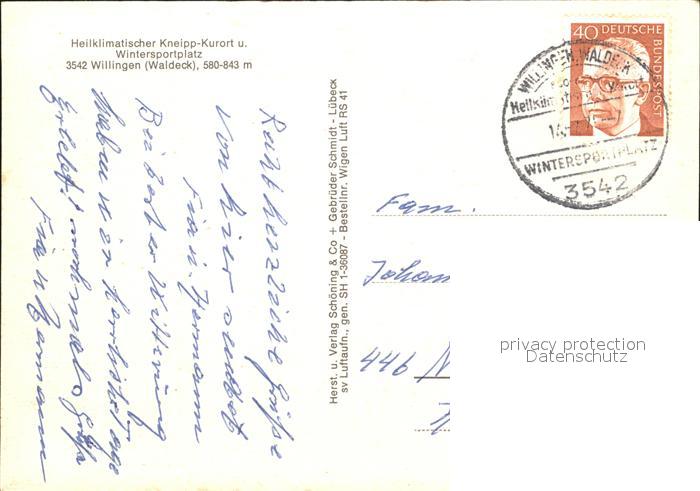 Heilklimatischer Kneipp-Kurort u.
Wintersportplatz
3542 Willingen (Waldeck), 580-843 m
Recht herzliche Grüße
von hier sendet
Frau u. Hermann
Bei bester Witterung
haben wir herrliche Tage
Erlebt! nochmals Grüße
Frau Hermann
Herst. u. Verlag Schöning & Co + Gebrüder Schmidt - Lübeck
sv Luftaufn., gen. SH 1-36087 - Bestellnr. Wigen Luft RS 41
40 DEUTSCHE
BUNDESPOST
WILLINGEN, WALDECK
WINTERSPORTPLATZ
3542
Fam.
Johan
446 N
privacy protection
Datenschutz